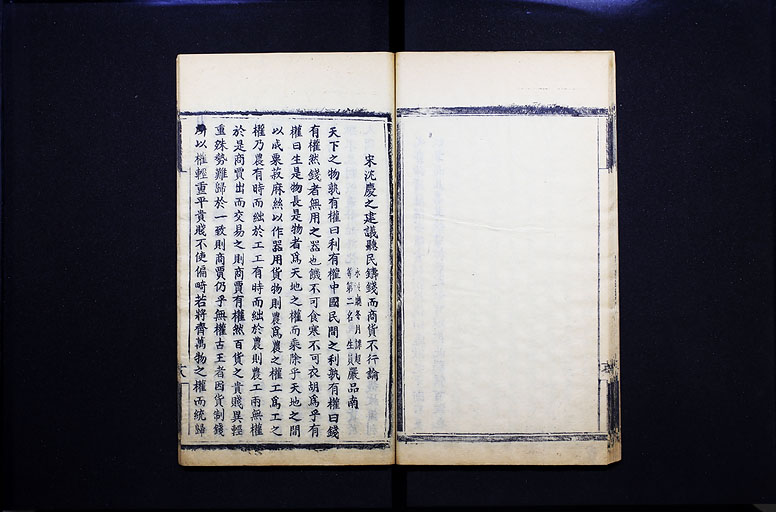 宋沈慶之建議聽民鑄錢而商貨不行論
冬月課超
等第二名 生員嚴品南
天下之物孰有權曰利有權中國民間之利孰有權曰錢
有權然錢者無用之器也饑不可食寒不可衣胡爲乎有
權曰生是物長是物者爲天地之權而乘除乎天地之間
以成粟菽麻絲以作器用貨物則農爲農之權工爲工之
權乃農有時而絀於工工有時而絀於農則農工兩無權
於是商賈出而交易之則商賈有權然百貨之貴賤異輕
重殊勢難歸於一致則商賈仍乎無權古王者因貨制錢
所以權輕重平貴賤不使偏畸若將齊萬物之權而統歸